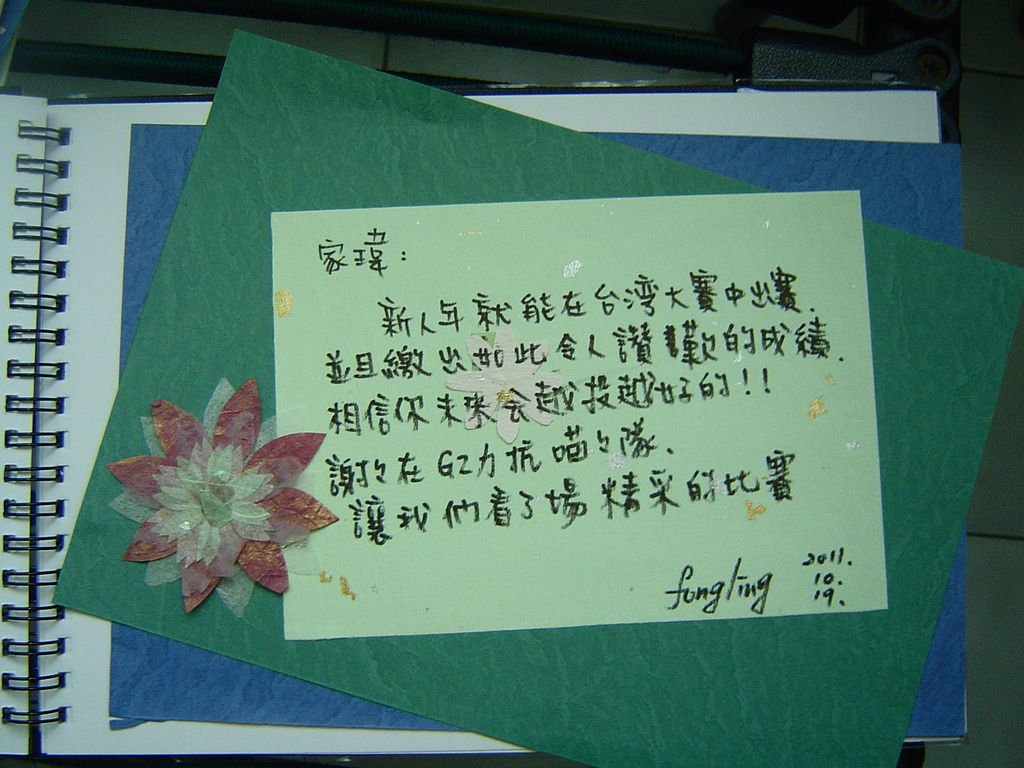 家瑋：
新人年就能在台湾大賽中出賽．
並且繳出如此令人讚歎的成績．
相信你未來会越投越好的!!
謝々在G2力抗喵々隊．
讓我們看了場精采的比賽
fongling
2011.
10.
19.